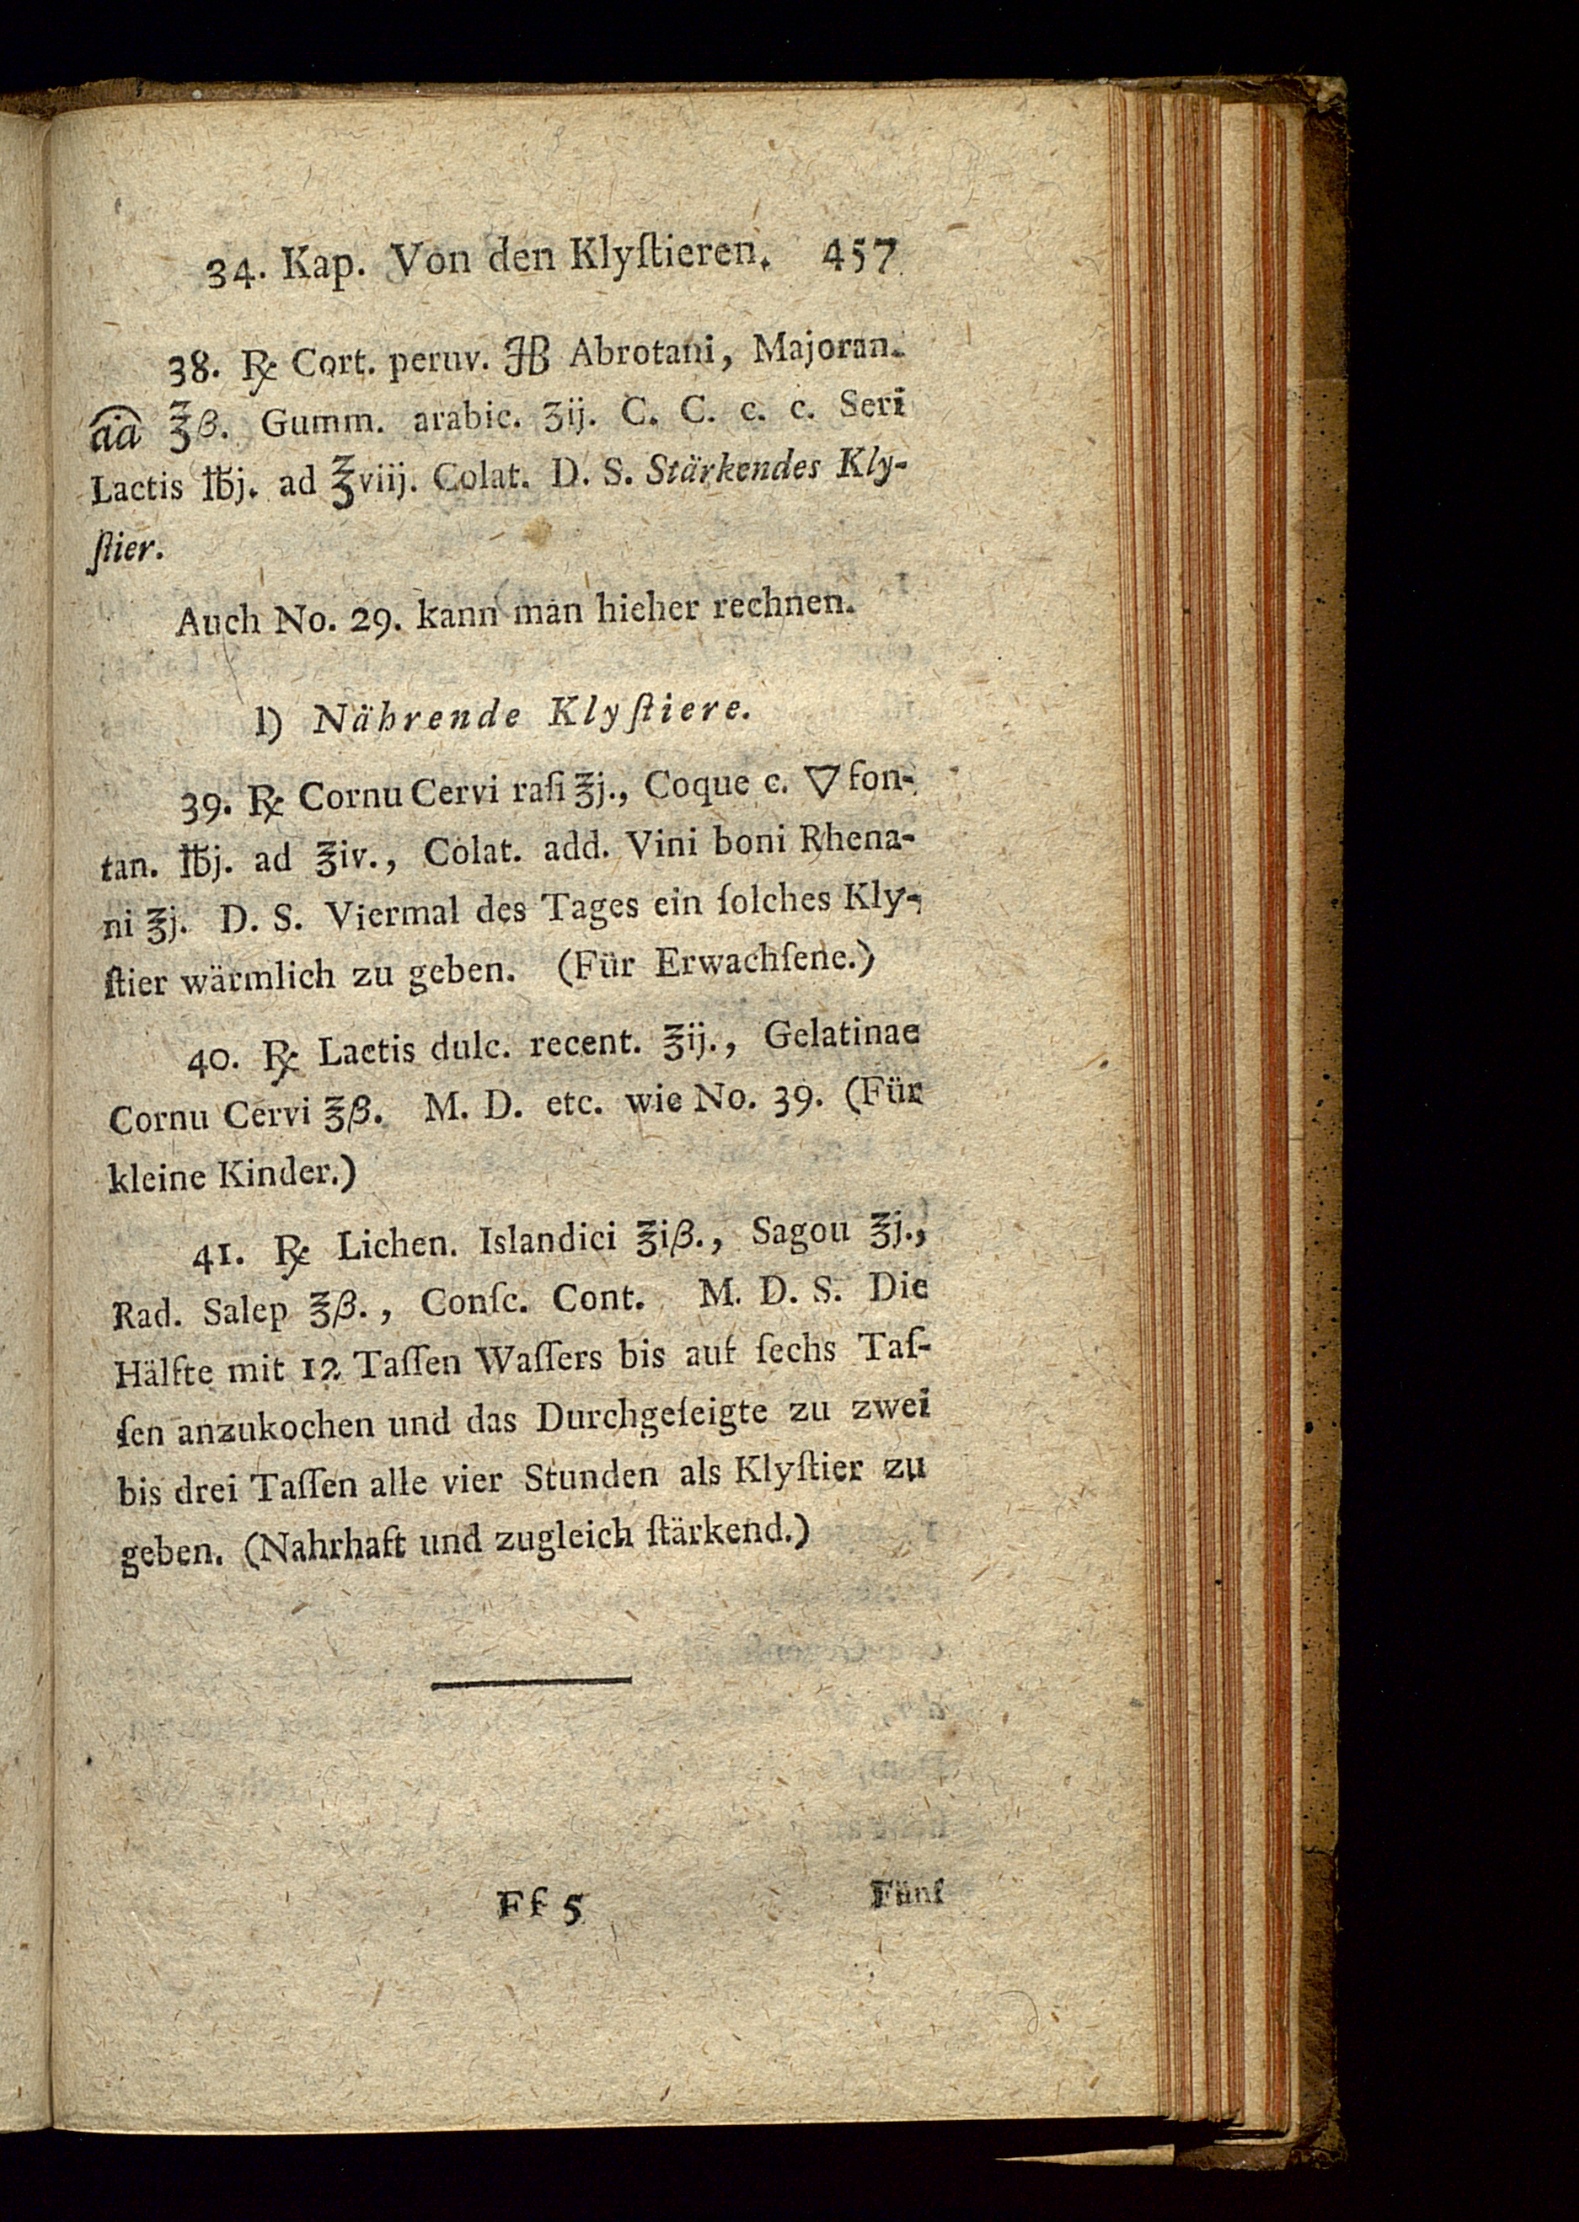 34. Kap. Von den Klyſtieren. 457
38. ℞ Cort. peruv. HB Abrotani, Majoran.
āā ℥β. Gumm. arabic. ʒij. C. C. c. c. Seri
Lactis ℔j. ad ℥viij. Colat. D. S. Stärkendes Kly-
ſtier.
Auch No. 29. kann man hieher rechnen.
l) Nährende Klyſtiere.
39. ℞ Cornu Cervi raſi ℥j., Coque c. ▽ fon-
tan. ℔j. ad ℥iv., Colat. add. Vini boni Rhena-
ni ℥j. D. S. Viermal des Tages ein ſolches Kly-
ſtier wärmlich zu geben. (Für Erwachſene.)
40. ℞ Lactis dulc. recent. ℥ij., Gelatinae
Cornu Cervi ℥β. M. D. etc. wie No. 39. (Für
kleine Kinder.)
41. ℞ Lichen. Islandici ℥iβ., Sagou ℥j.,
Rad. Salep ℥β., Conſc. Cont. M. D. S. Die
Hälfte mit 12 Taſſen Waſſers bis auf ſechs Taſ-
ſen anzukochen und das Durchgeſeigte zu zwei
bis drei Taſſen alle vier Stunden als Klyſtier zu
geben. (Nahrhaft und zugleich ſtärkend.)
Ff 5 Fünf